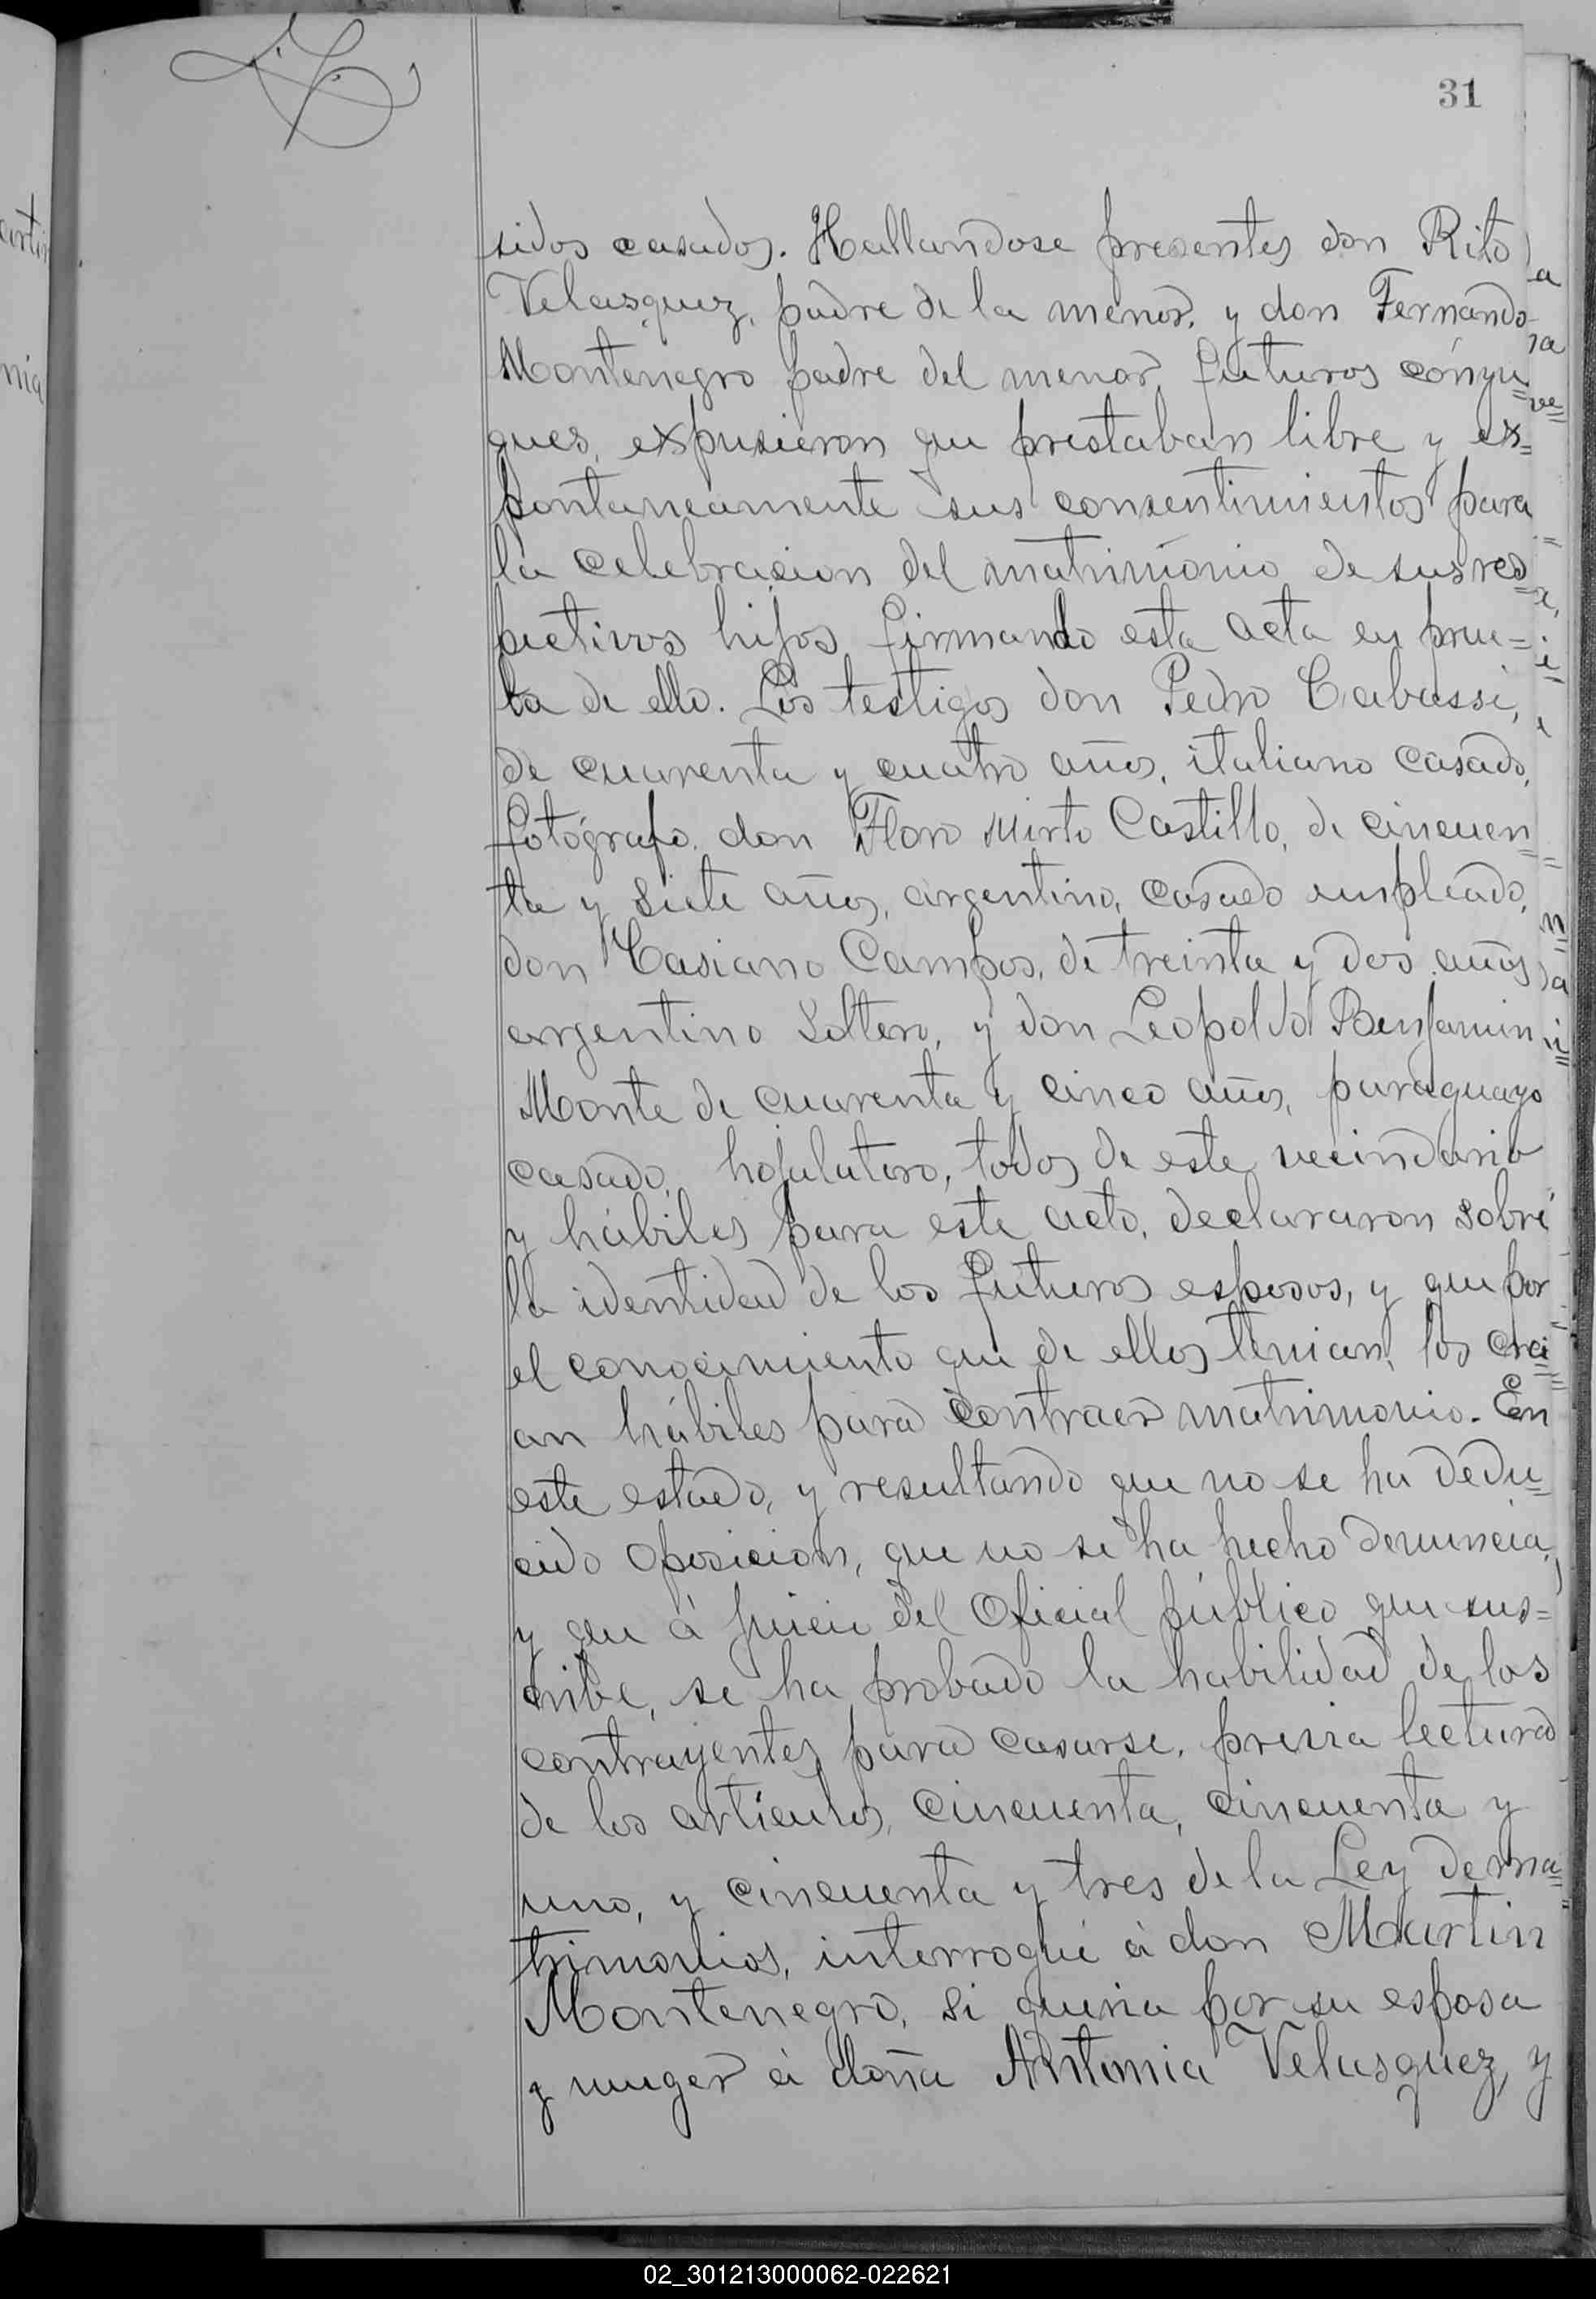 31
sidos casados. Hallandose presentes don Rito
Velasquez, padre de la menor, y don Fernando
Montenegro padre del menor, futuros cónyu=
gues, expusieron que prestaban libre y es=
pontaneamente sus consentimientos para
la celebracion del matrimonio de sus res=
pectivos hijos firmando esta acta en prue=
ba de ello. Los testigos don Pedro Cabassi,
de cuarenta y cuatro años, italiano casado,
fotógrafo, don Floro Mirto Castillo, de cincuen=
ta y siete años, argentino, casado empleado,
don Casiano Campos, de treinta y dos años
argentino soltero, y don Leopoldo Benjamin
Monte de cuarenta y cinco años, paraguayo
casado, hojalatero, todos de este vecindario
y hábiles para este acto, declararon sobre
la identidad de los futuros esposos, y que por
el conocimiento que de ellos tenian, los crei=
an hábiles para contraer matrimonio. En
este estado, y resultando que no se ha dedu=
cido oposicion, que no se ha hecho denuncia,
y que á juicio del Oficial público que sus=
cribe, se ha probado la habilidad de los
contrayentes para casarse, previa lectura
de los artículos, cincuenta, cincuenta y
uno, y cincuenta y tres de la Ley de ma=
trimonios, interrogué á don Martin
Montenegro, si queria por su esposa
y muger á doña Antonia Velasquez, y
02_301213000062-022621